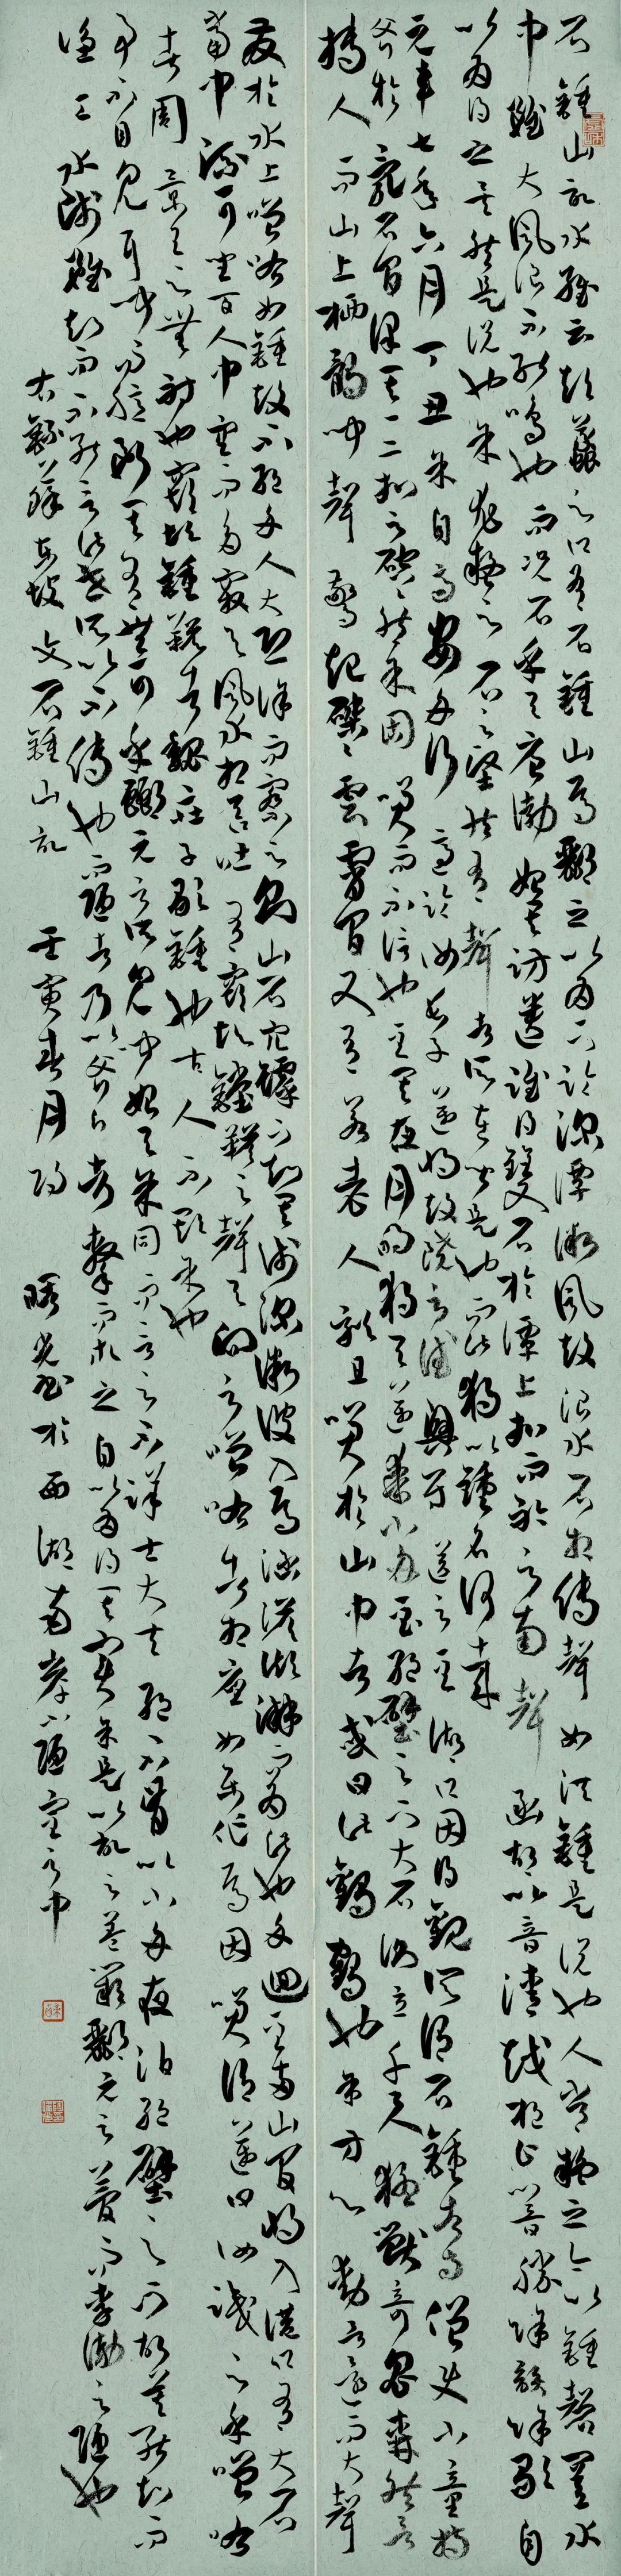 石鍾山記水經云彭蠡之口有石鍾山焉酈元以為下臨深潭微風鼓浪水石相搏聲如洪鍾是說也人常疑之今以鍾磬置水
中雖大風浪不能鳴也而況石乎至唐渤始其訪遺蹤得雙石於潭上扣而聆之南聲函胡北音清越桴止響騰餘韻徐歇自
以為得之矣然是說也余尤疑之石之鏗然有聲者所在皆是也而此獨以鍾名何哉
元豐七年六月丁丑余自齊安舟行適臨汝長子邁將赴饒之德興尉送之至湖口因得觀所謂石鍾者寺僧使小童持
斧於亂石間擇其一二扣之硿々然余固笑而不信也至其夜月明獨與邁乘小舟至絕壁之下大石側立千尺猛獸奇鬼森然欲
搏人而山上栖鶻聞聲驚起磔々雲霄間又有若老人欬且笑於山中者或曰此鸛鶴也余方心動欲還而大聲
發於水上噌吰如鍾鼓不絕舟人大恐徐而察之則山石穴罅不知其淺深微波入焉涵澹澎湃而為此也舟迴至兩山間將入港口有大石
當中流可坐百人中空而多竅與風水相吞吐有窾坎鏜鞳之聲與向之噌吰者相應如樂作焉因笑謂邁曰汝識之乎噌吰
者周景王之無射也窾坎鏜鞳者魏莊子歌鍾也古人不欺余也
事不目見耳聞而臆斷其有無可乎酈元之所見聞殆與余同而言之不詳士大夫終不肯以小舟夜泊絕壁之下故莫能知而
漁工水師雖知而不能言此世所以不傳也而陋者乃以斧斤考擊而求之自以為得其實余是以記之蓋歎酈元之簡而笑李渤之陋也
右錄蘇東坡文石鍾山記 壬寅春月 曙光書於西湖南岸小陋室之中